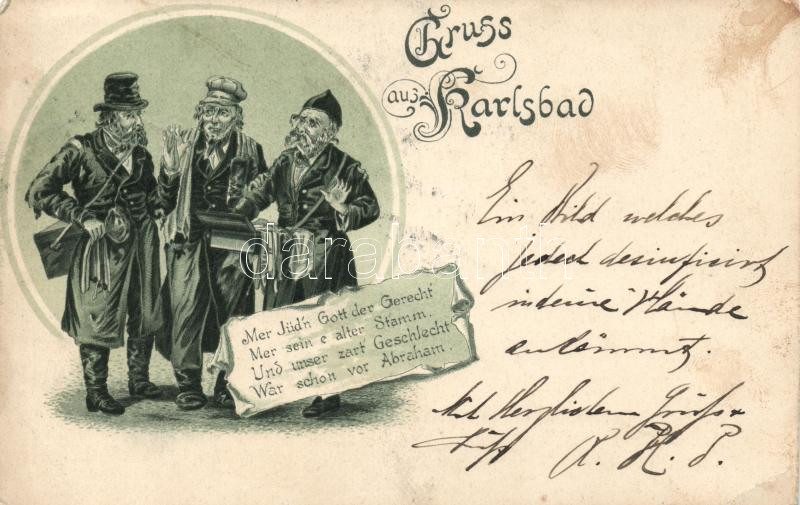 Gruss
aus
Karlsbad
Mer Jüd'n Gott der Gerecht'
Mer sein e alter Stamm.
Und unser zart' Geschlecht
War schon vor Abraham.
Ein Bild welches
jedoch desinficirt
in deine Hände
ankömmt.
Mit Herzlichem Gruß +
Kuß
R. H. P.
darabanth